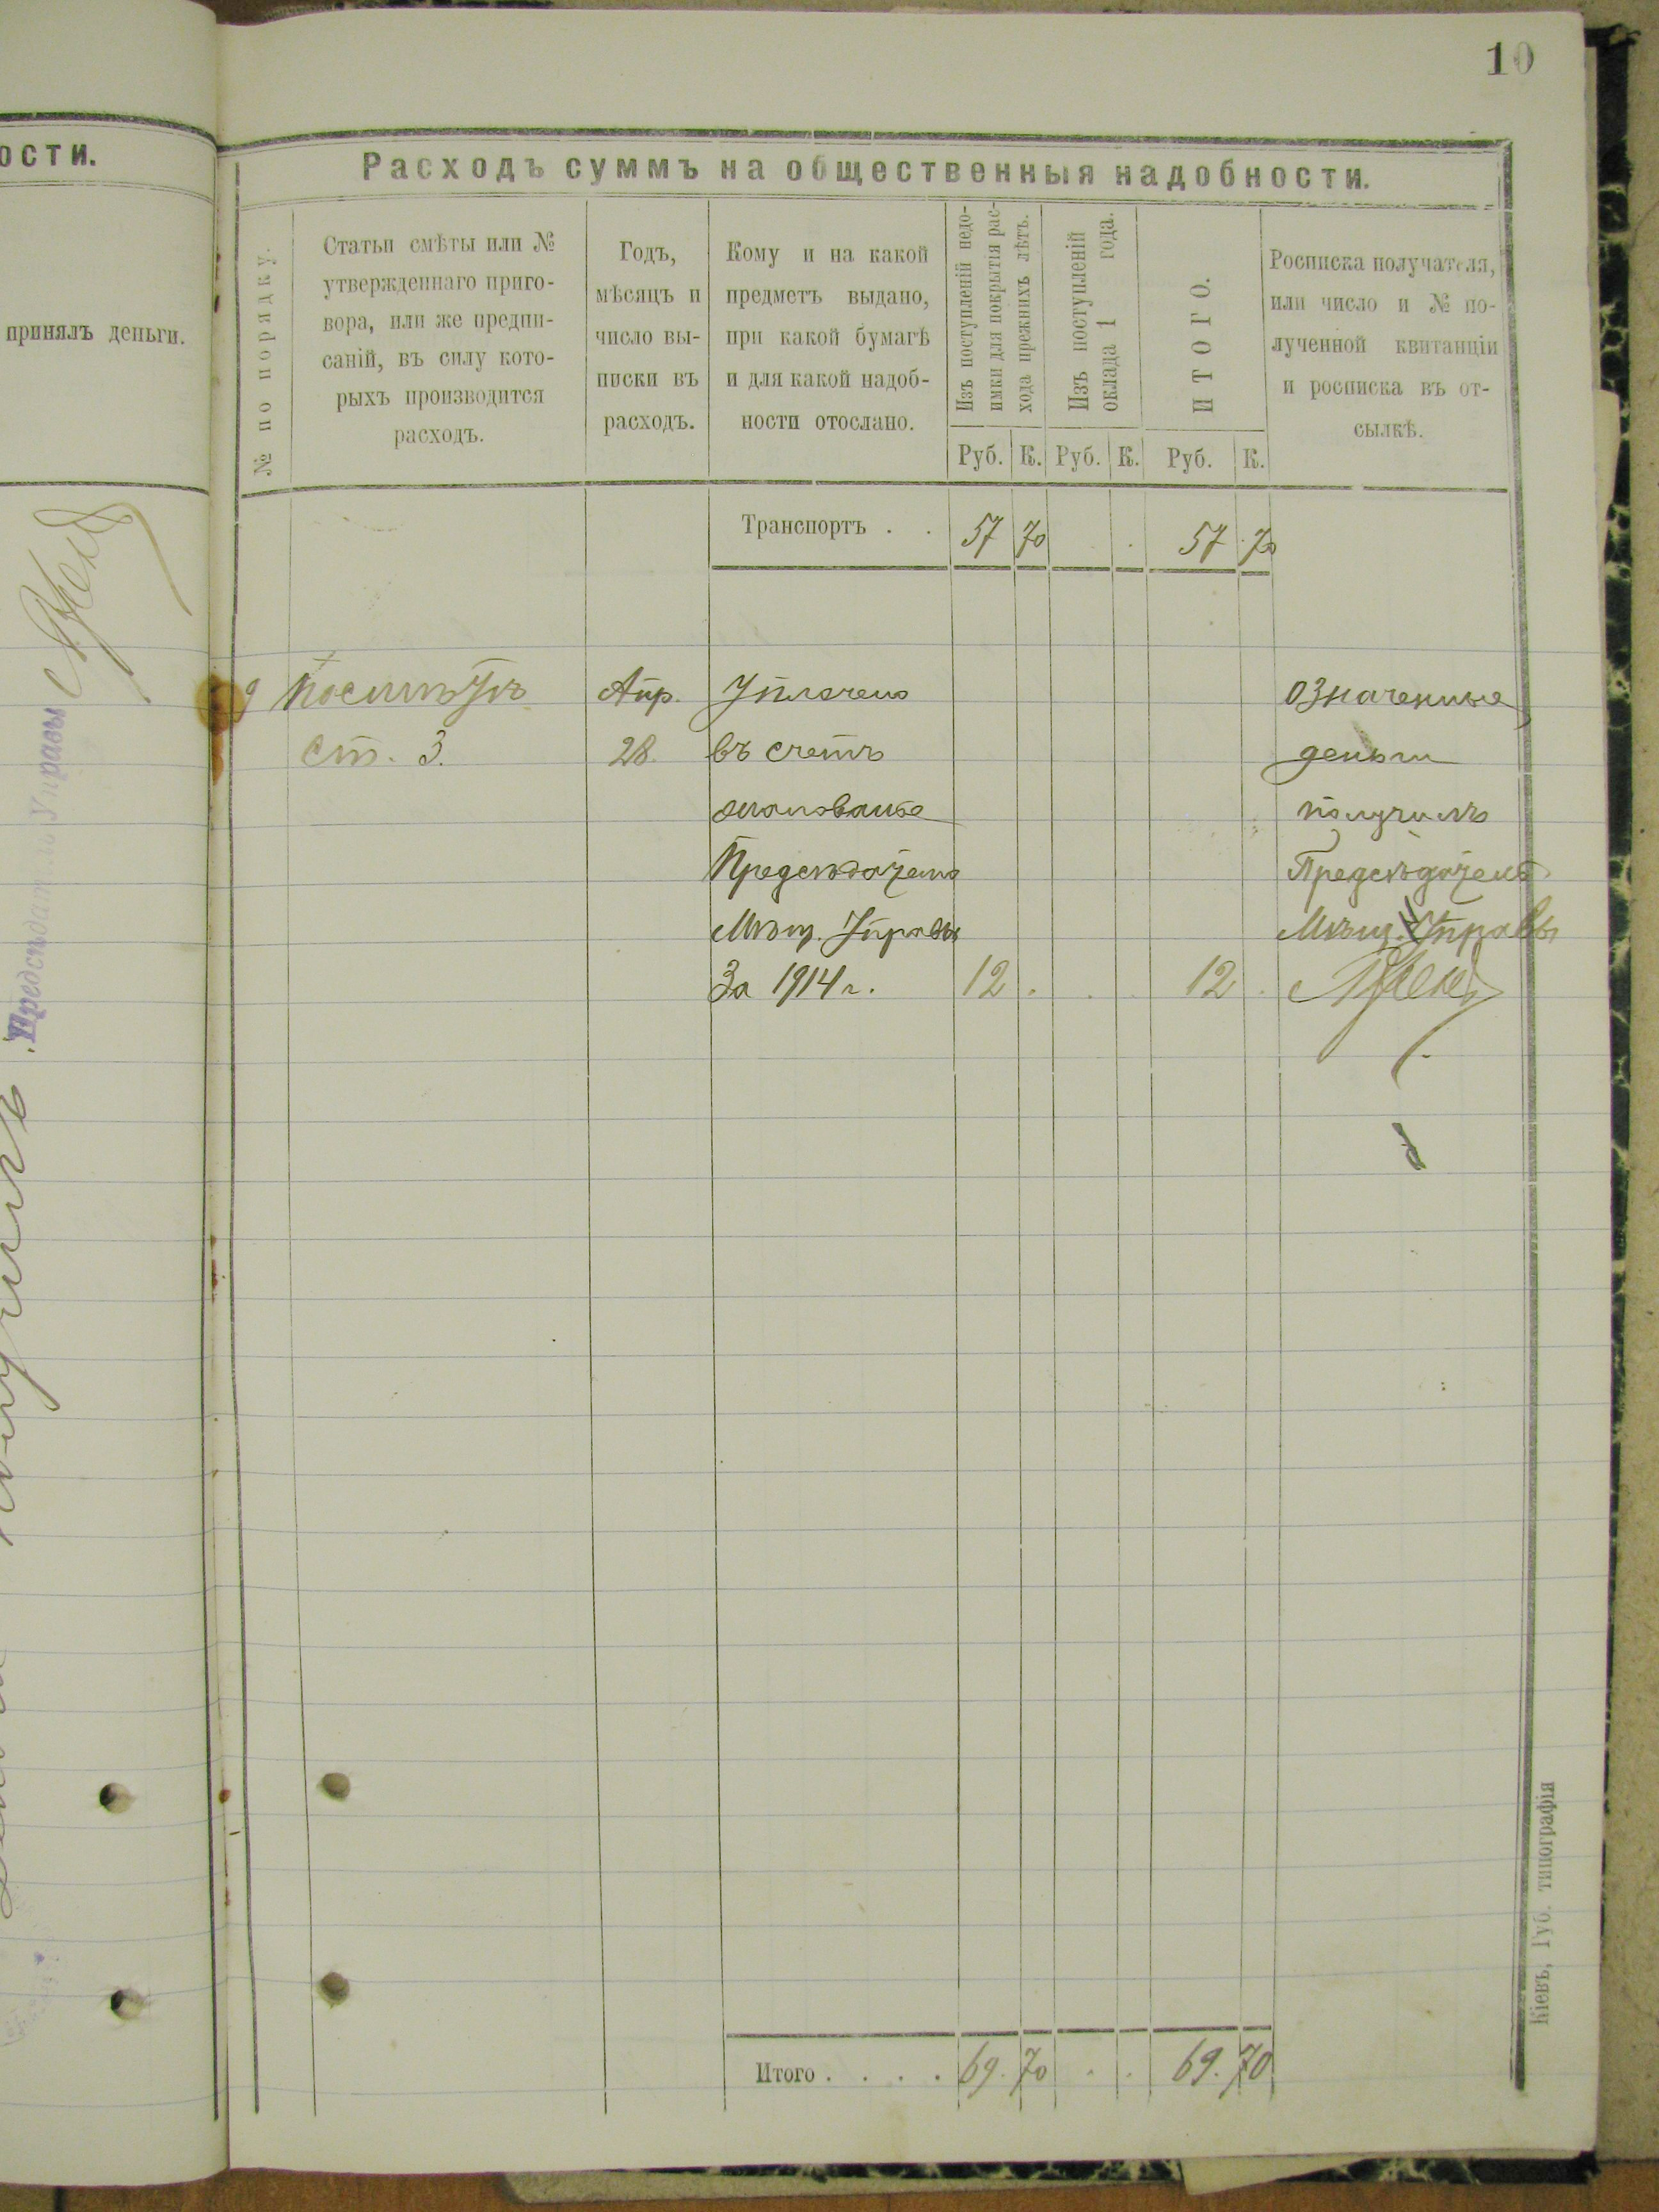 10
ости.
принялъ деньги.
Предсѣдатель Управы
Расходъ суммъ на общественныя надобности.
№ по порядку.
Статьи смѣты или №
утвержденнаго приго-
вора, или же предпи-
саній, въ силу кото-
рыхъ производится
расходъ.
Годъ,
мѣсяцъ и
число вы-
писки въ
расходъ.
Кому и на какой
предметъ выдано,
при какой бумагѣ
и для какой надоб-
ности отослано.
Изъ поступленій недо-
имки для покрытія рас-
хода прежнихъ лѣтъ.
Изъ поступленій
оклада 1 года.
ИТОГО.
Росписка получателя,
или число и № по-
лученной квитанціи
и росписка въ от-
сылкѣ.
Руб. К. Руб. К. Руб. К.
Транспортъ . . 57 70 57 70
9 По смѣтѣ Апр. Уплачено означенные
ст. 3. 28 въ счетъ деньги
жалованье получилъ
Предсѣдателю Предсѣдатель
Мѣщ. Управы Мѣщ. Управы
За 1914 г. 12 . 12 .
Итого . . . . 69. 70 . . 69. 70
Кіевъ, Губ. типографія